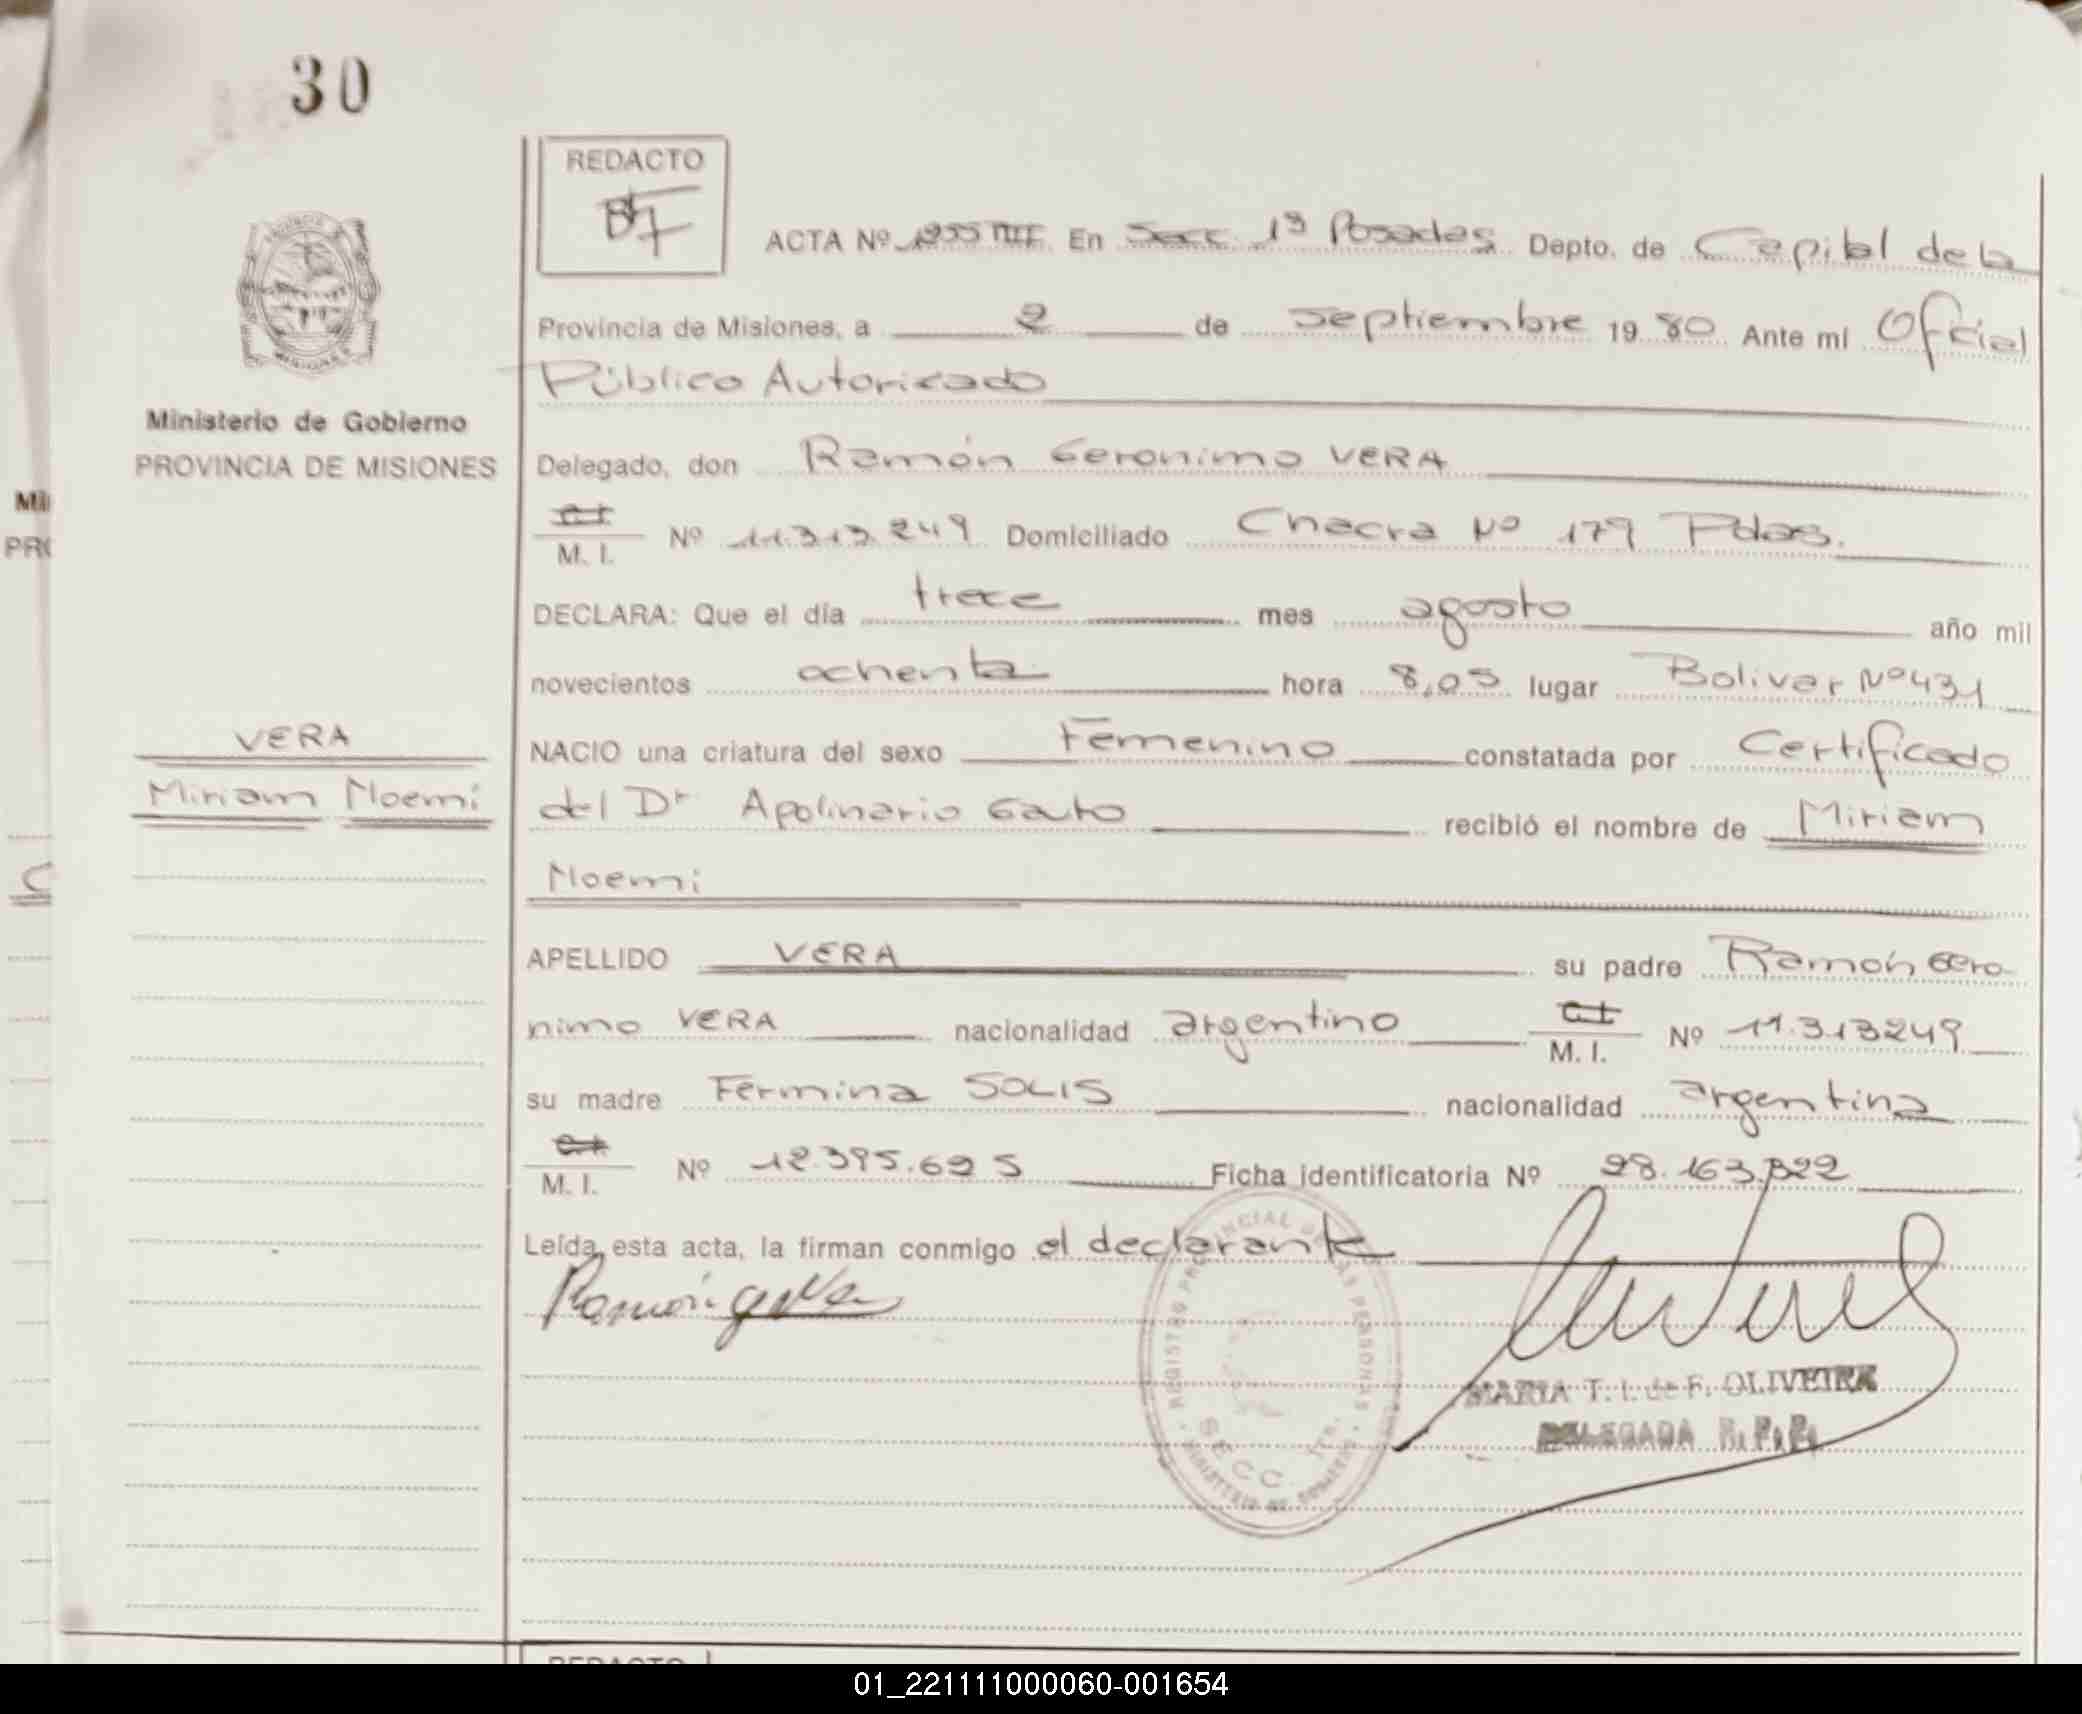 30
REDACTO
ACTA Nº 1255 TIII En Secc. 1ª Posadas Depto. de Capital de la
Provincia de Misiones, a 2 de septiembre 1980 Ante mí Oficial
Público Autorizado
Ministerio de Gobierno
PROVINCIA DE MISIONES
Delegado, don Ramón Geronimo VERA
C.I. M. I. Nº 11.313.249 Domiciliado Chacra Nº 179 Pdas.
DECLARA: Que el día trece mes agosto año mil
novecientos ochenta hora 8,05 lugar Bolivar Nº 431
VERA
NACIO una criatura del sexo Femenino constatada por Certificado
Miriam Noemi
del Dr Apolinario Gauto recibió el nombre de Miriam
Noemi
APELLIDO VERA su padre Ramón Gero-
nimo VERA nacionalidad argentino C.I. M. I. Nº 11.313249
su madre Fermina SOLIS nacionalidad argentina
C.I. M. I. Nº 12.395.625 Ficha identificatoria Nº 28.163.822
Leída esta acta, la firman conmigo el declarante
Ramón g Vera
REGISTRO PROVINCIAL DE LAS PERSONAS
SECC. 1ra.
MINISTERIO DE GOBIERNO
MARIA T. I. de F. OLIVEIRA
DELEGADA R. P. P.
REDACTO
01_221111000060-001654